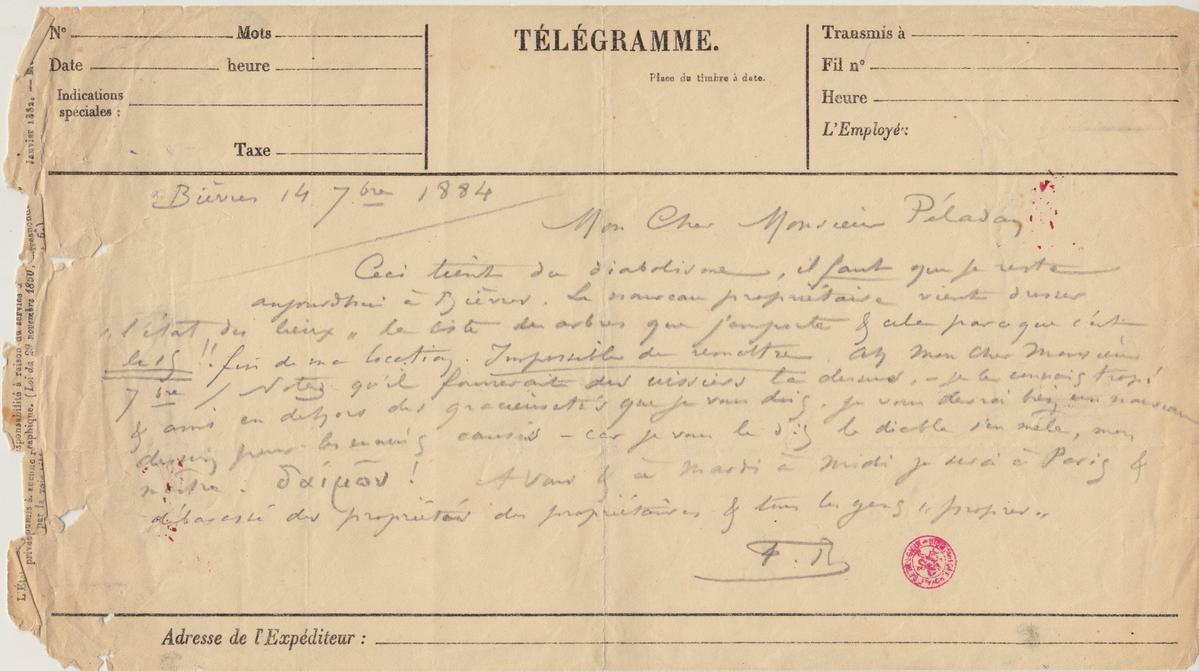 N° Mots
Date heure
Indications
spéciales :
Taxe
TÉLÉGRAMME.
Place du timbre à date.
Transmis à
Fil n°
Heure
L'Employé:
Bièvres 14 7bre 1884
Mon Cher Monsieur Péladan
Ceci tient du diabolisme, il faut que je reste
aujourdhui à Bièvres. Le nouveau propriétaire vient dresser
„ l'état des lieux „ la liste des arbres que j'emporte & cela parceque c'est
le 15 !! fin de ma location. Impossible de remettre. Ah mon cher Monsieur
7bre / Notez qu'il des là dessus, – je les connais trop!
& ami en dehors des gracieusetés que je vous dois, je vous devrai bien un nouveau
dessin pour les ennuis causés – car je vous le dis le diable s'en mêle, mon
maître. δαίμων! A vous & à Mardi à Midi je serai à Paris &
débarassé du propriétaire des propriétaires & tous les gens „ propres „
F. R
Adresse de l'Expéditeur :
Janvier 1882.
(Loi du 29 novembre 1850,